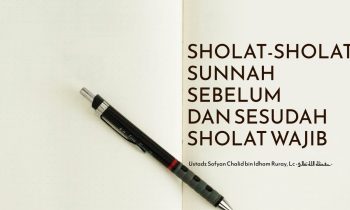 SHOLAT-SHOLAT
SUNNAH
SEBELUM
DAN SESUDAH
SHOLAT WAJIB
Ustadz Sofyan Chalid bin Idham Ruray, Lc